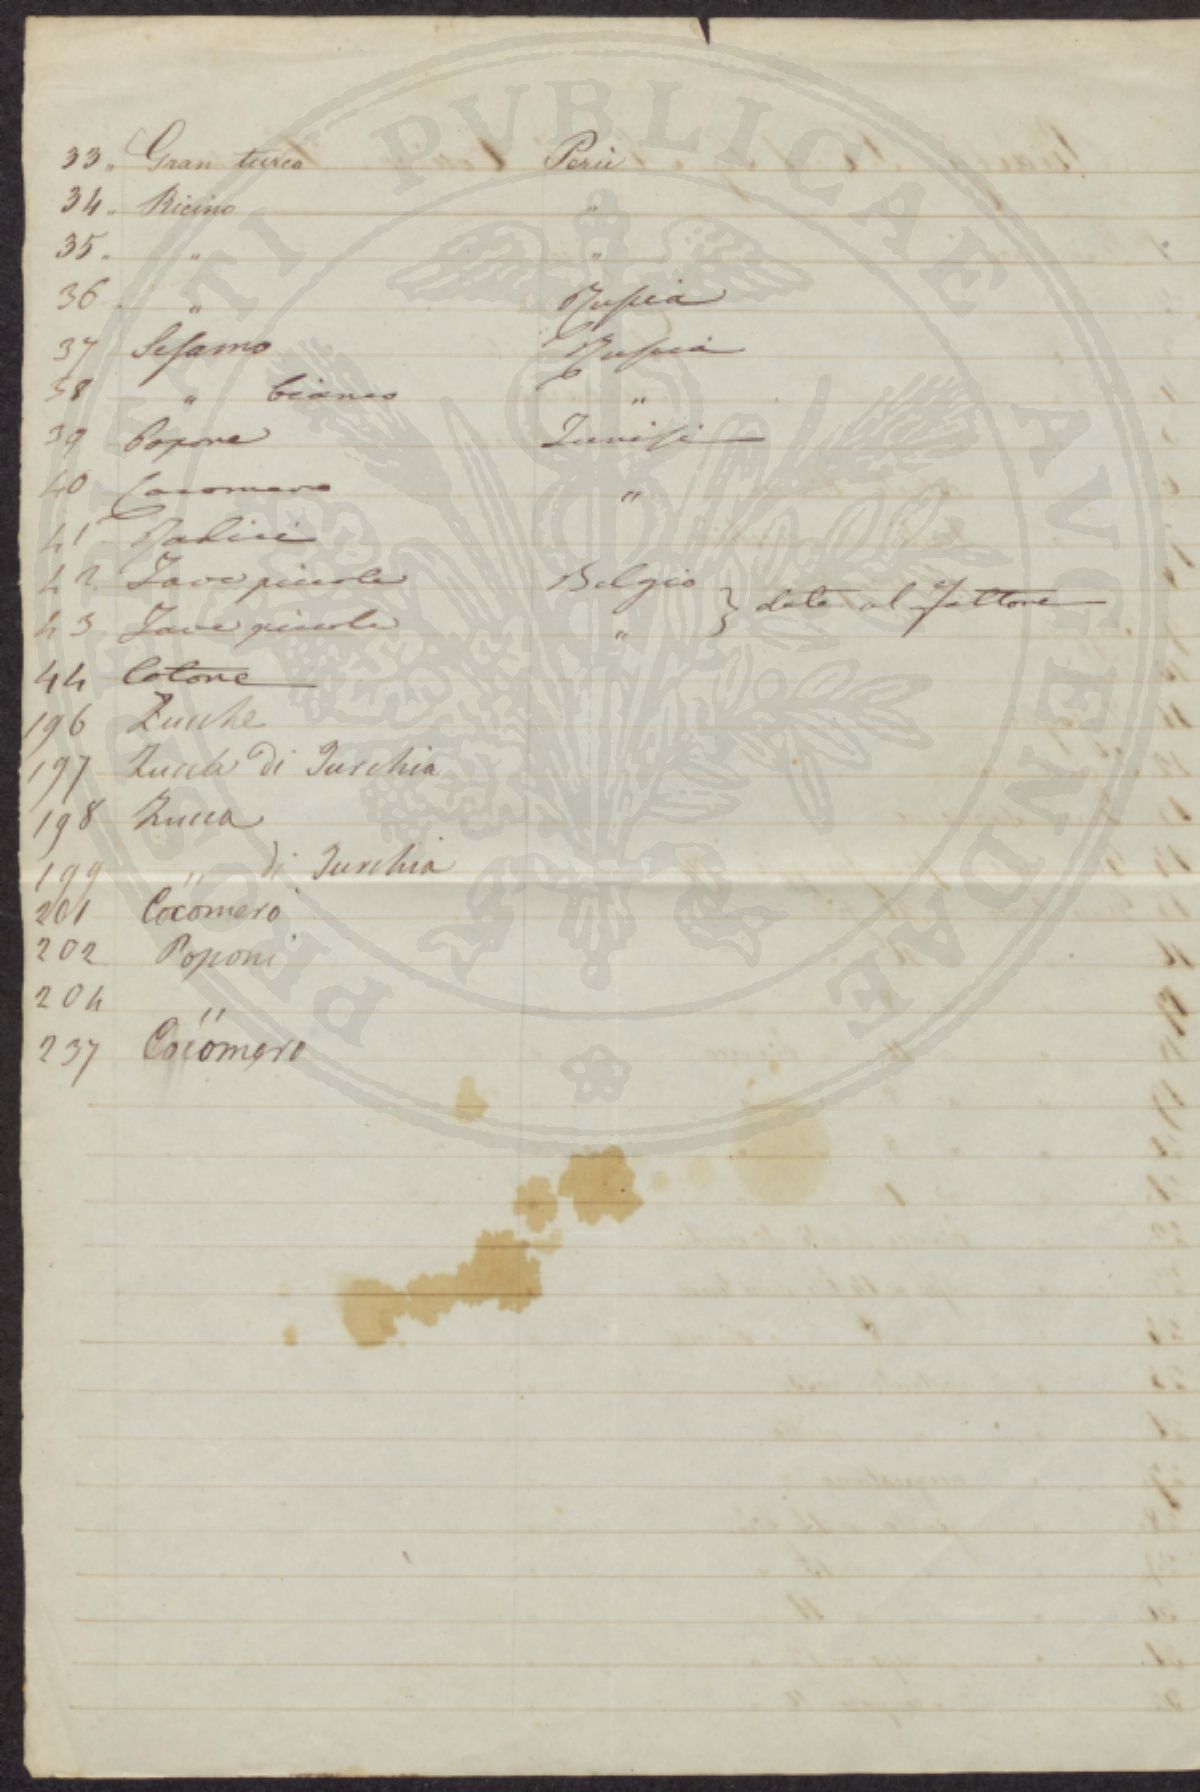 33. Gran turco Perù
34. Ricino "
35. " "
36 " Russia
37 Sesamo Russia
38 " bianco "
39 Popone Tunisi
40 Cocomero "
41 Radici
42 Fave piccole Belgio } date al fattore
43 Fave piccole "
44 Cotone
196 Zucche
197 Zucca di Turchia
198 Zucca
199 " di Turchia
201 Cocomero
202 Poponi
204 "
237 Cocomero
PROSPERITATI PVBLICAE AVGENDAE